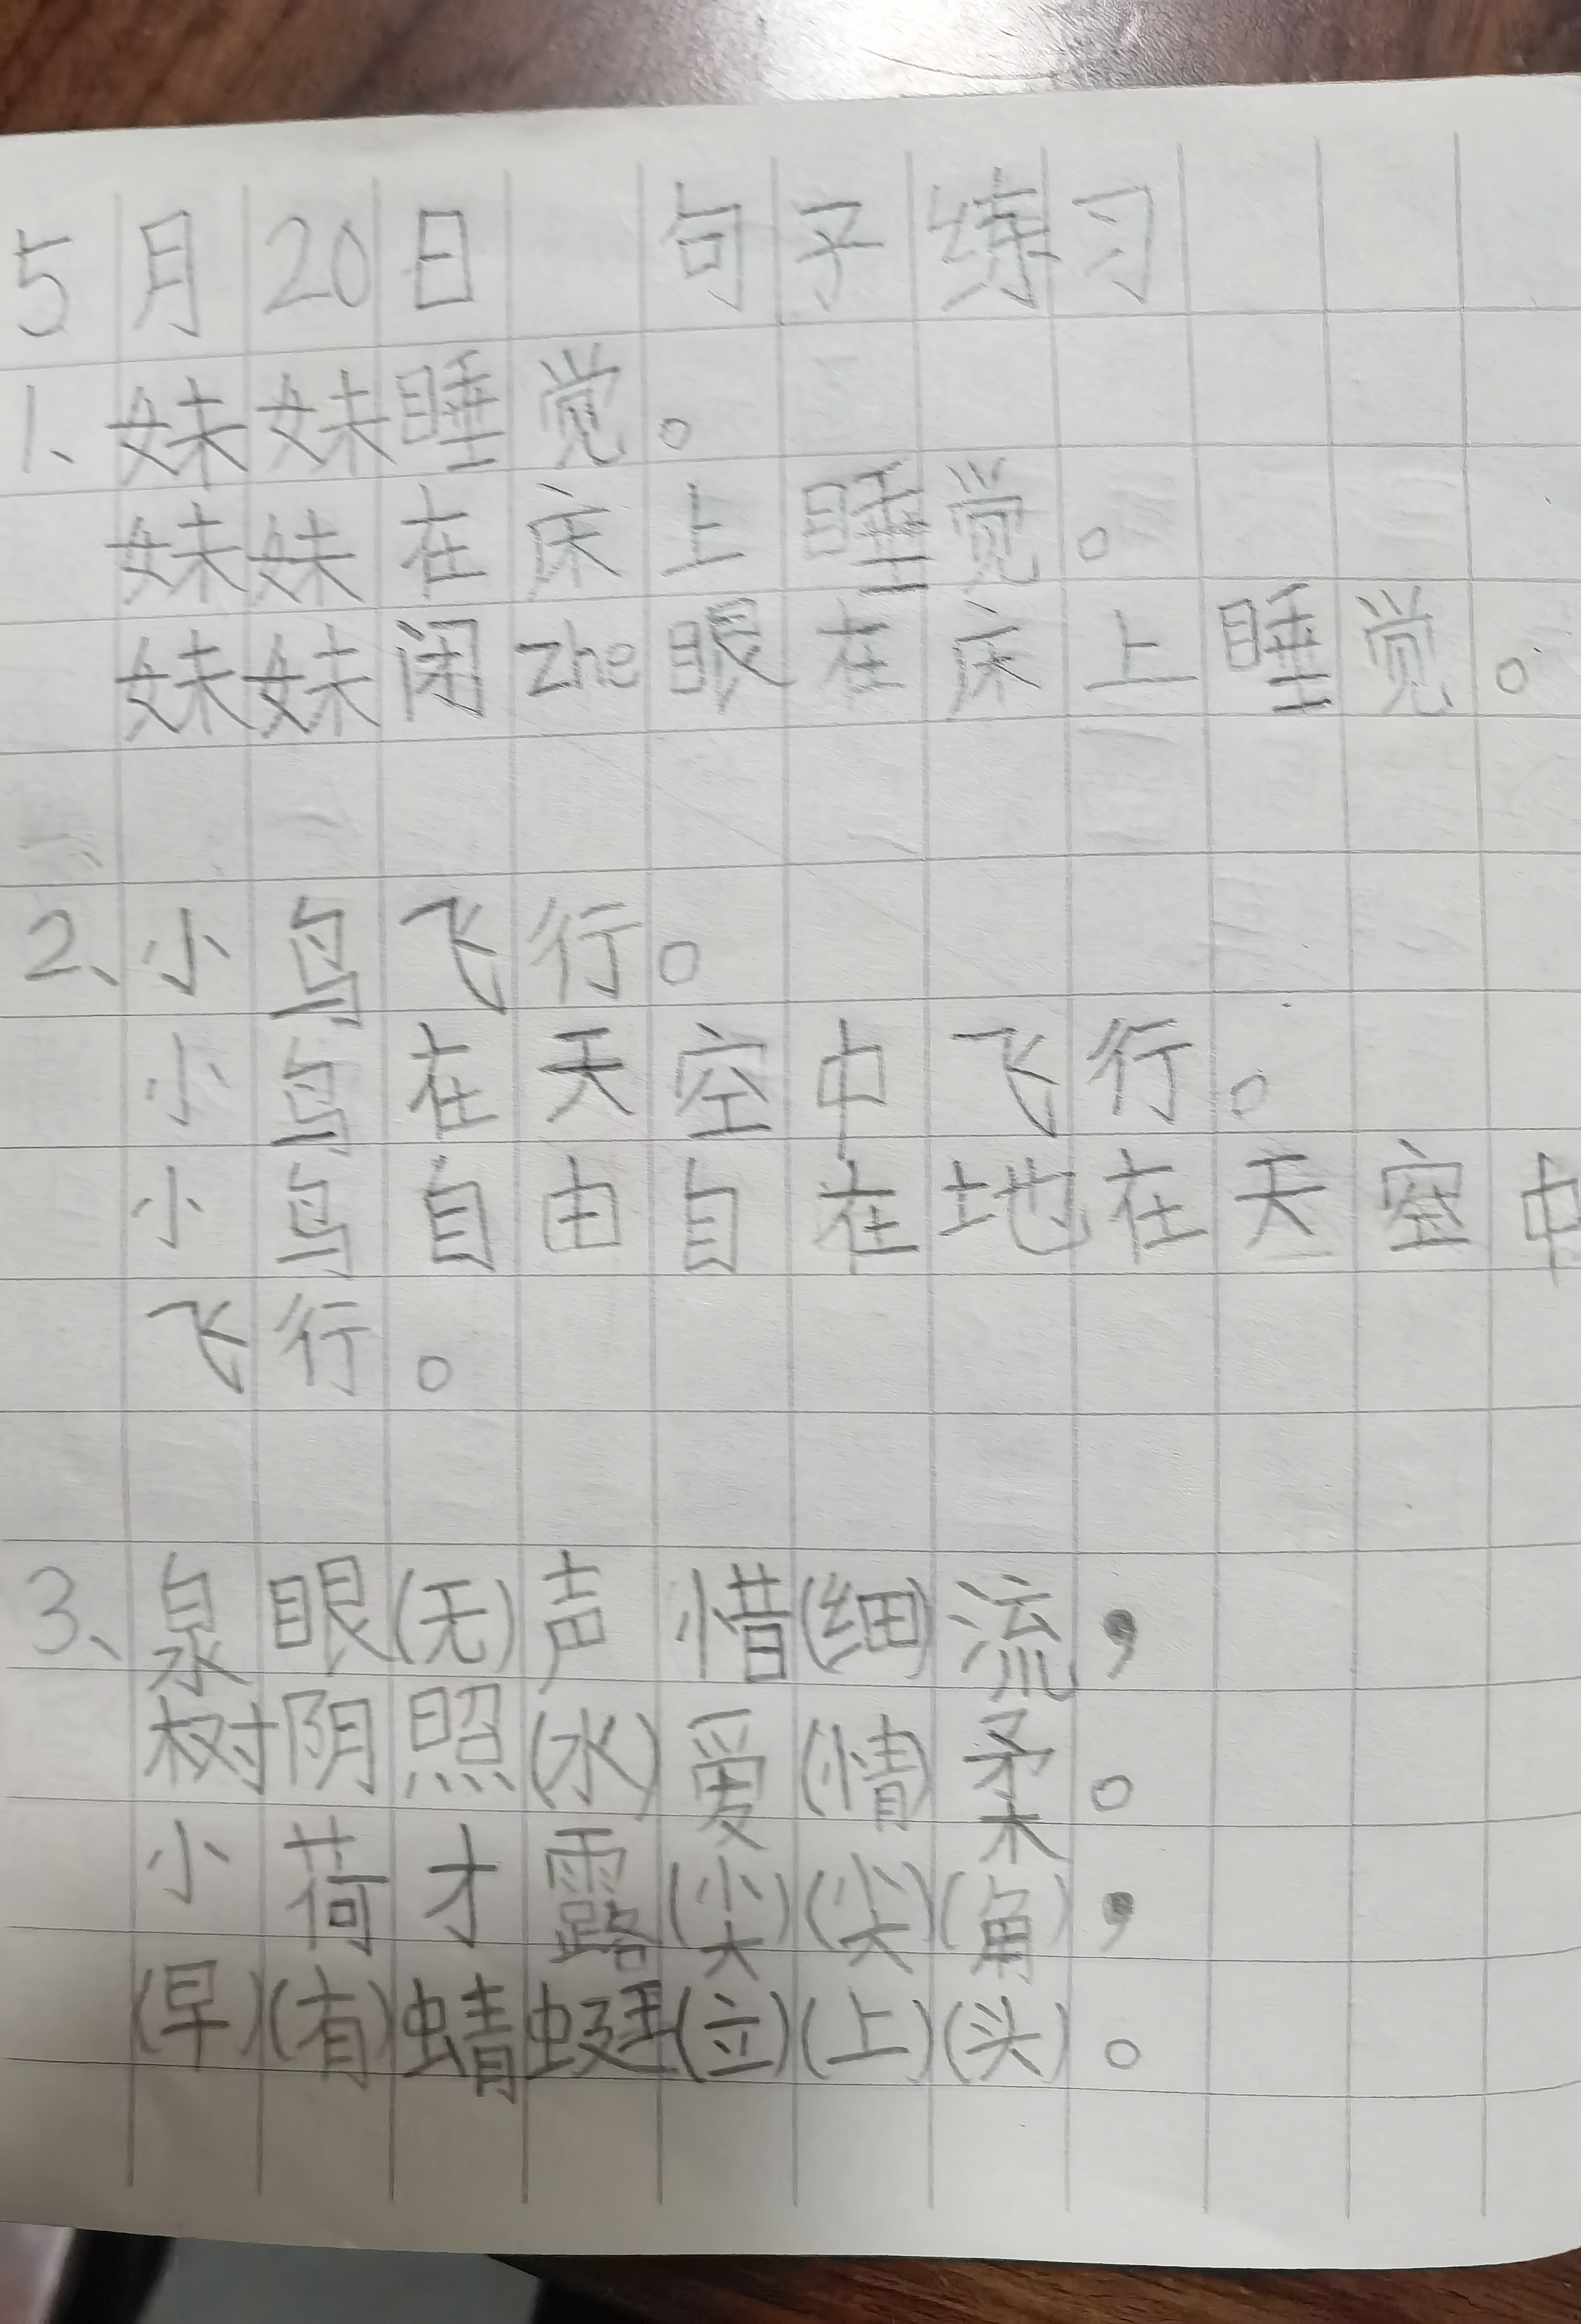 5月20日 句子练习
1、妹妹睡觉。
妹妹在床上睡觉。
妹妹闭zhe眼在床上睡觉。
2、小鸟飞行。
小鸟在天空中飞行。
小鸟自由自在地在天空中
飞行。
3、泉眼(无)声惜(细)流，
树阴照(水)爱(情)柔。
小荷才露(尖)(尖)(角)，
(早)(有)蜻蜓(立)(上)(头)。